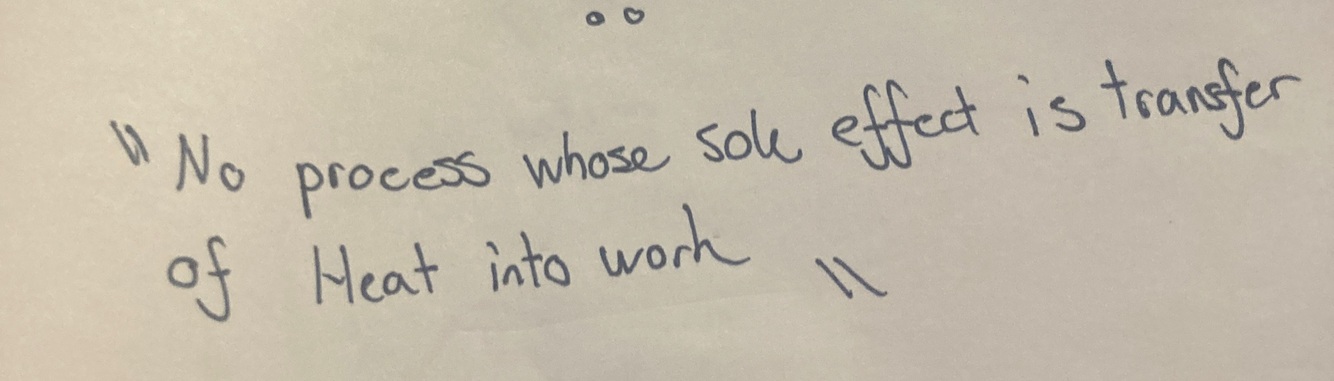 "No process whose sole effect is transfer
of Heat into work"